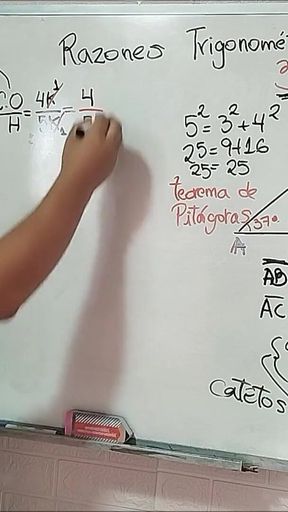 Razones Trigonomé
CO/H = 4k/5k = 4/5
5² = 3² + 4²
25 = 9+16
25 = 25
Teorema de
Pitágoras
37°
A
AB
AC
Catetos